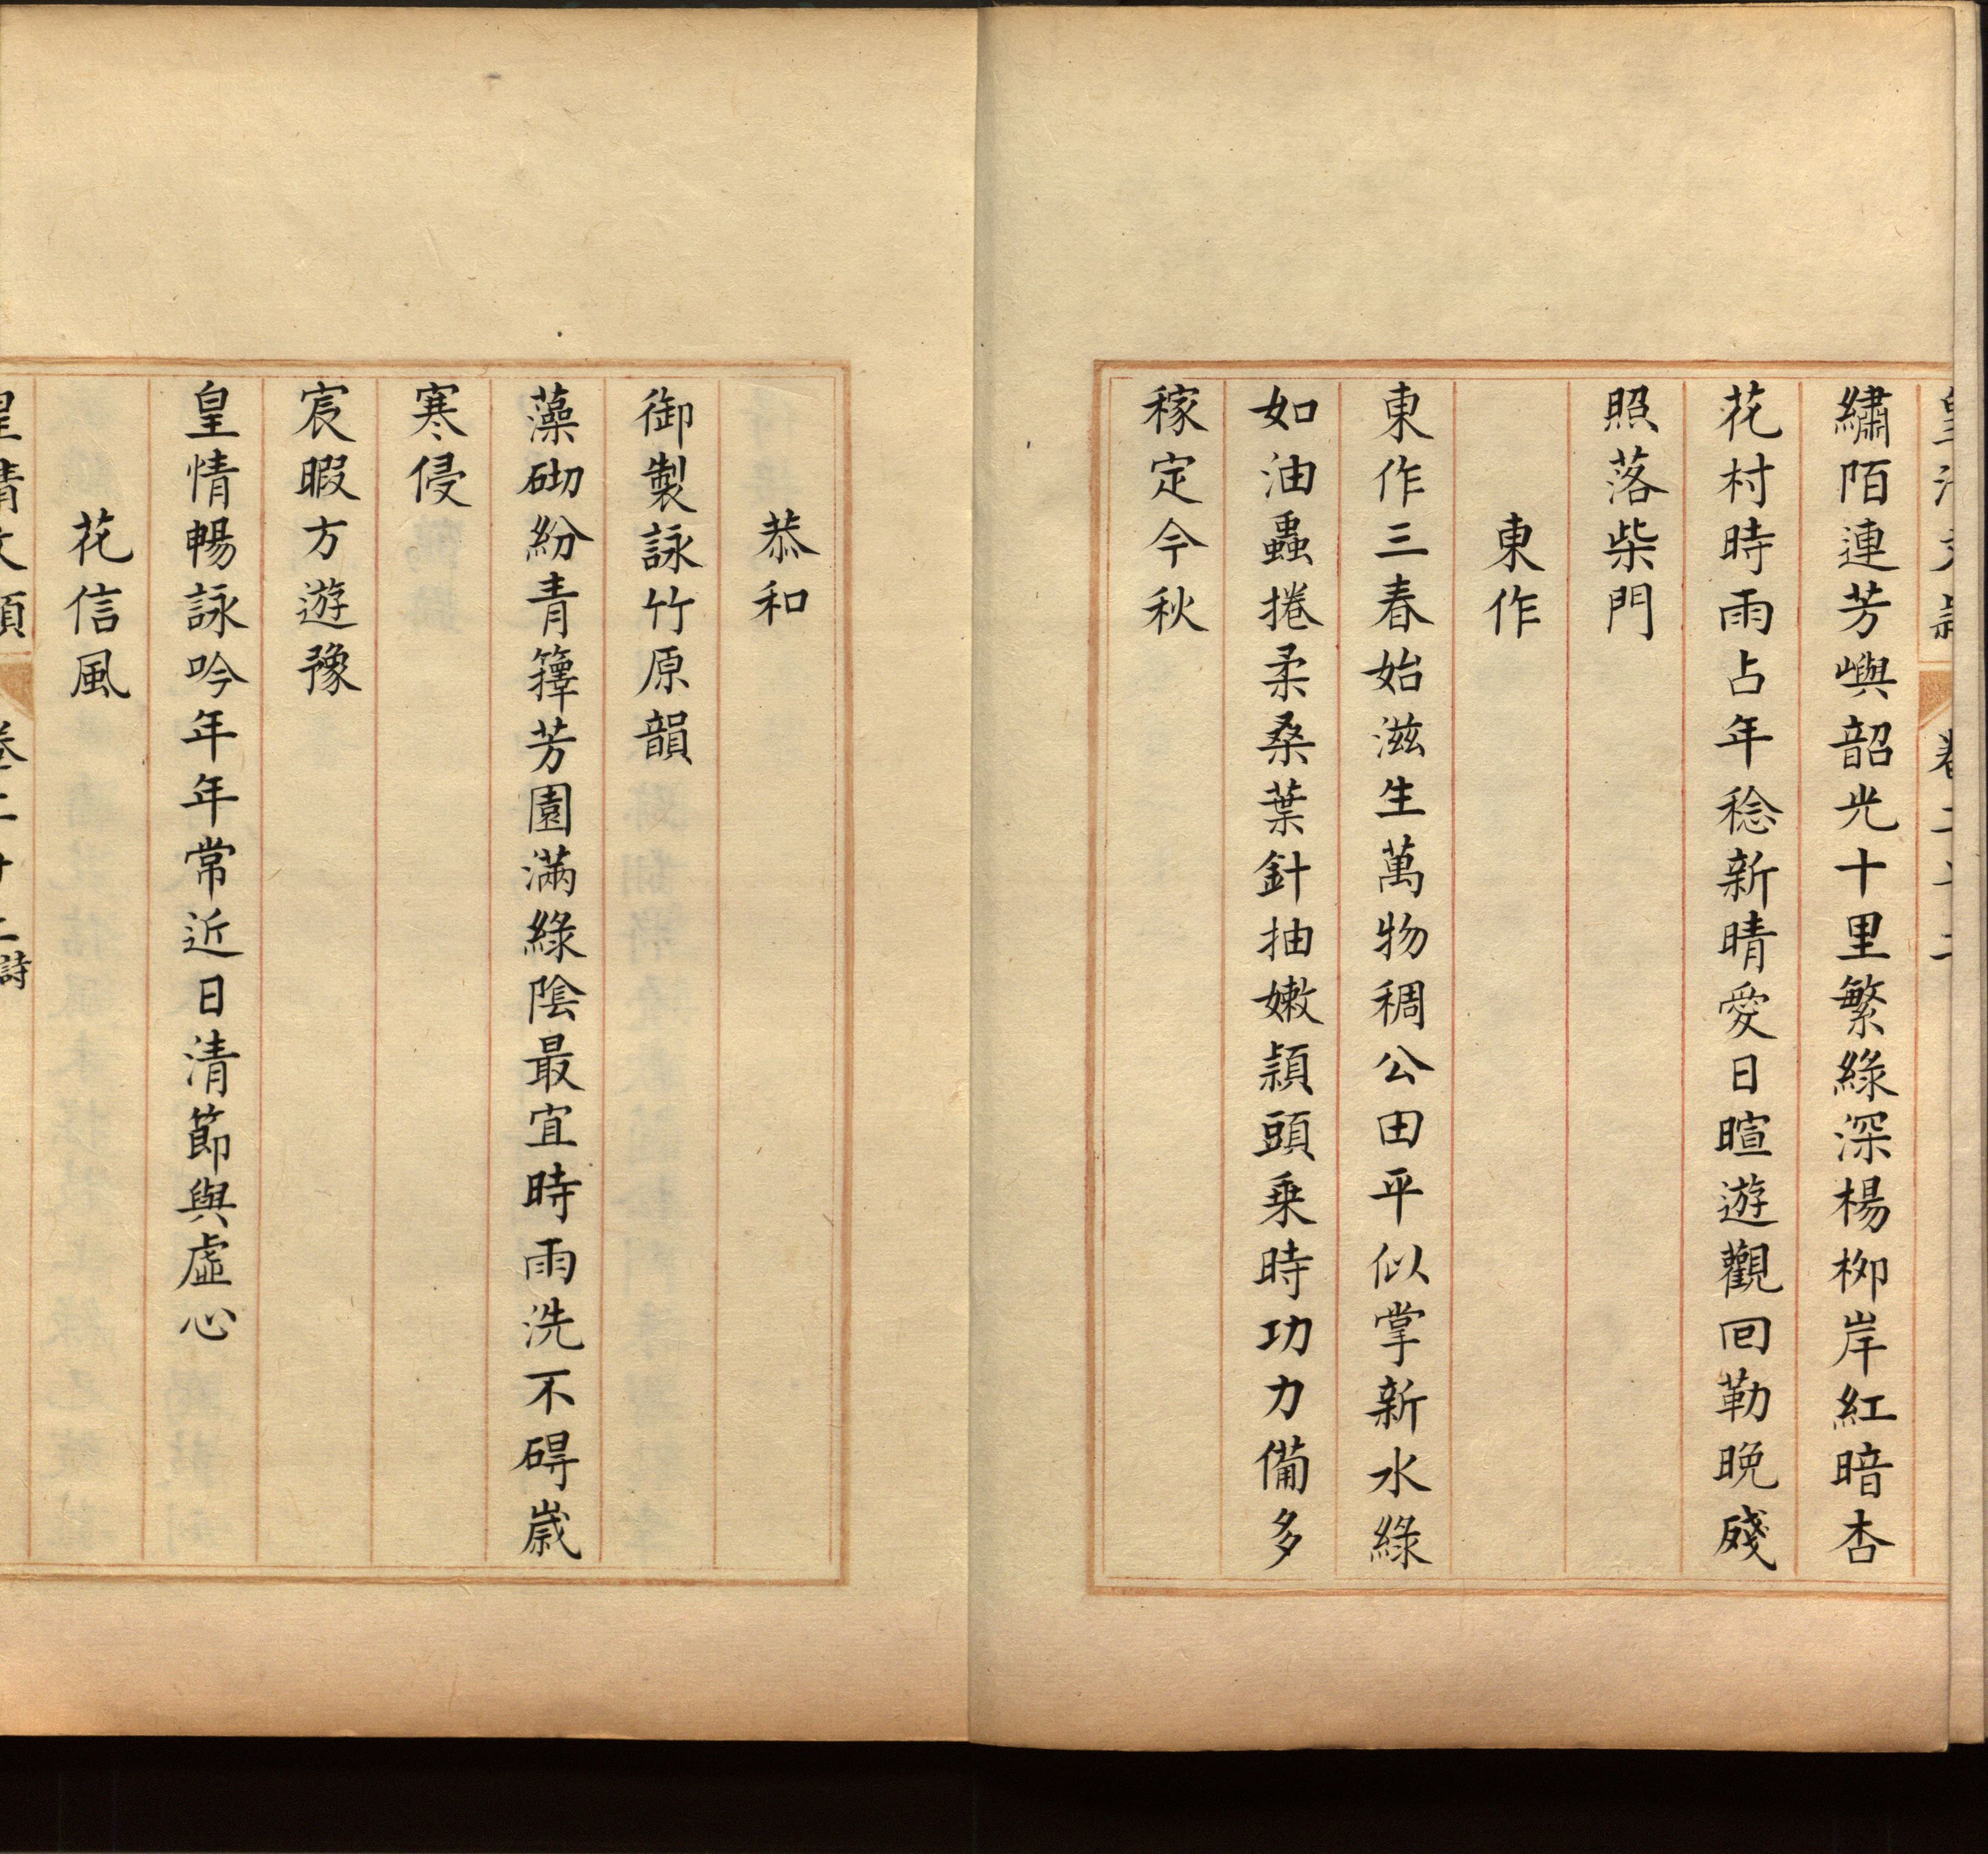 繡陌連芳嶼韶光十里繁綠深楊栁岸紅暗杏
花村時雨占年稔新晴愛日暄遊觀回勒晩殘
照落柴門
東作
東作三春始滋生萬物稠公田平似掌新水綠
如油蟲捲柔桑葉針抽嫩頴頭乗時功力備多
稼定今秋
恭和
御製詠竹原韻
藻砌紛青籜芳園滿綠陰最宜時雨洗不碍嵗
寒侵
宸暇方遊豫
皇情暢詠吟年年常近日清節與虛心
花信風